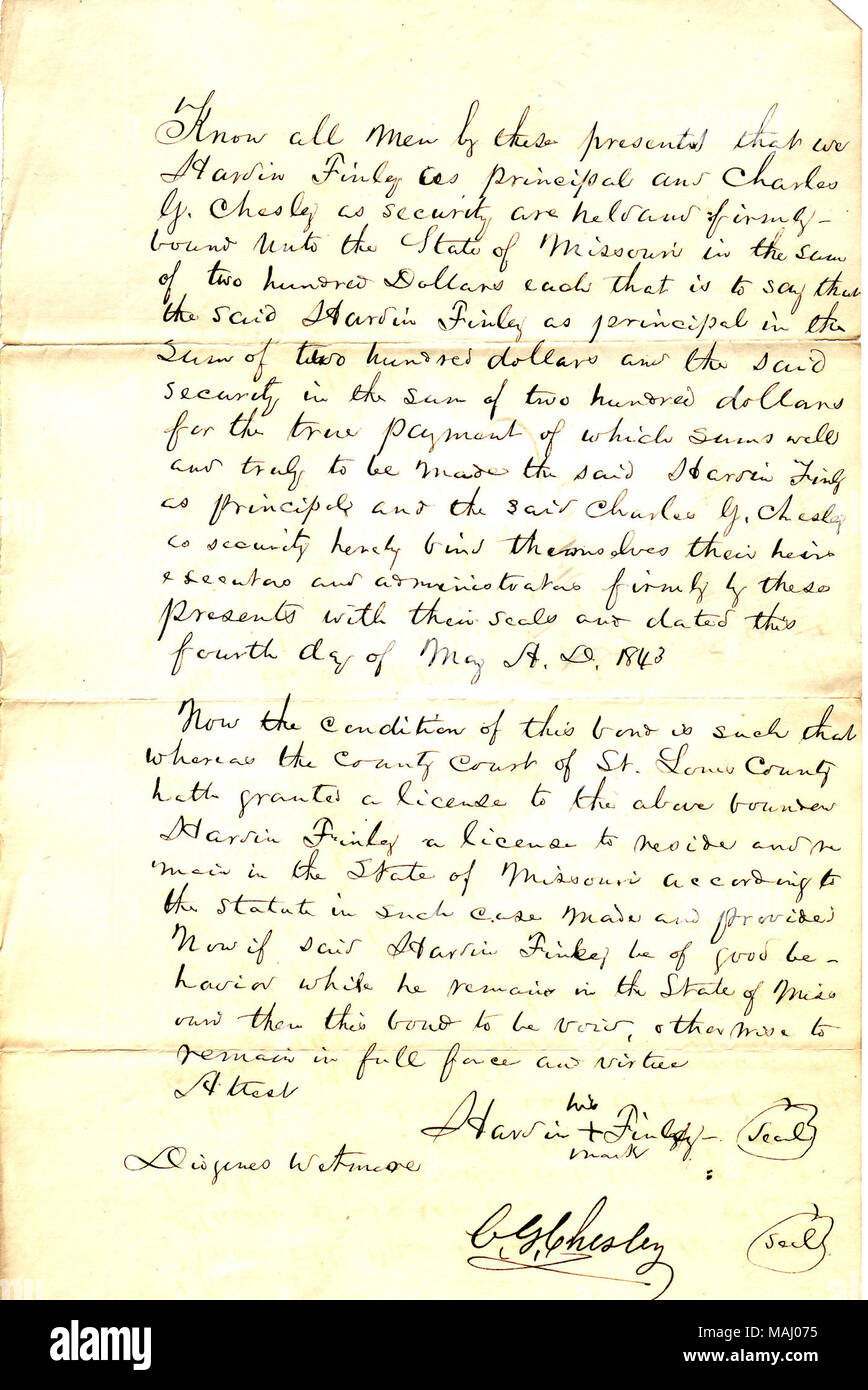 Know all Men by these presents that we
Hardin Finley as principal and Charles
G. Chesley as security are held and firmly-
bound unto the State of Missouri in the sum
of two hundred Dollars each that is to say that
the said Hardin Finley as principal in the
sum of two hundred dollars and the said
security in the sum of two hundred dollars
for the true payment of which sums well
and truly to be made the said Hardin Finly
as principle and the said Charles G. Chesley
as security hereby bind themselves their heirs
executors and administrators firmly by these
presents with their seals and dated this
fourth day of May A. D. 1843
Now the condition of this bond is such that
whereas the County Court of St. Louis County
hath granted a license to the above bounden
Hardin Finley a license to reside and re
main in the State of Missouri according to
the Statute in such case made and provided
Now if said Hardin Finley be of good be-
havior while he remains in the State of Miss
ouri then this bond to be void, otherwise to
remain in full force and virtue
Attest
his
Hardin + Finley- Seal
mark
Diogenes Wetmore
C. G. Chesley Seal
alamy
Image ID: MAJ075
www.alamy.com